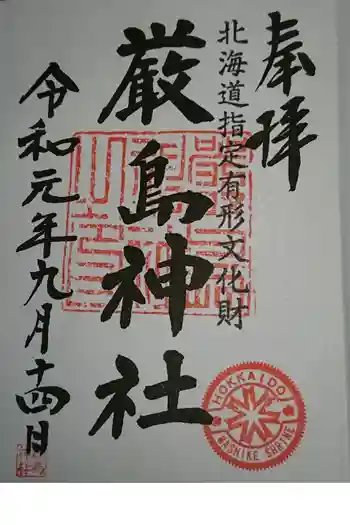 奉拝
北海道指定有形文化財
厳島神社
令和元年九月十四日
HOKKAIDO
MASHIKE SHRINE